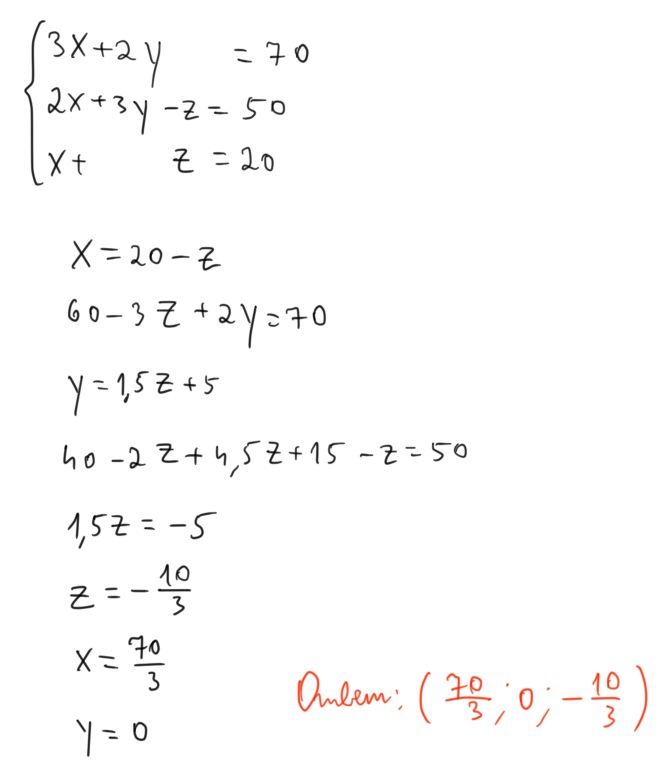 3x+2y = 70
2x+3y -z = 50
x+ z = 20
x = 20 - z
60 - 3z + 2y = 70
y = 1,5z + 5
40 - 2z + 4,5z + 15 - z = 50
1,5z = -5
z = -10/3
x = 70/3
y = 0
Ответ: (70/3; 0; -10/3)